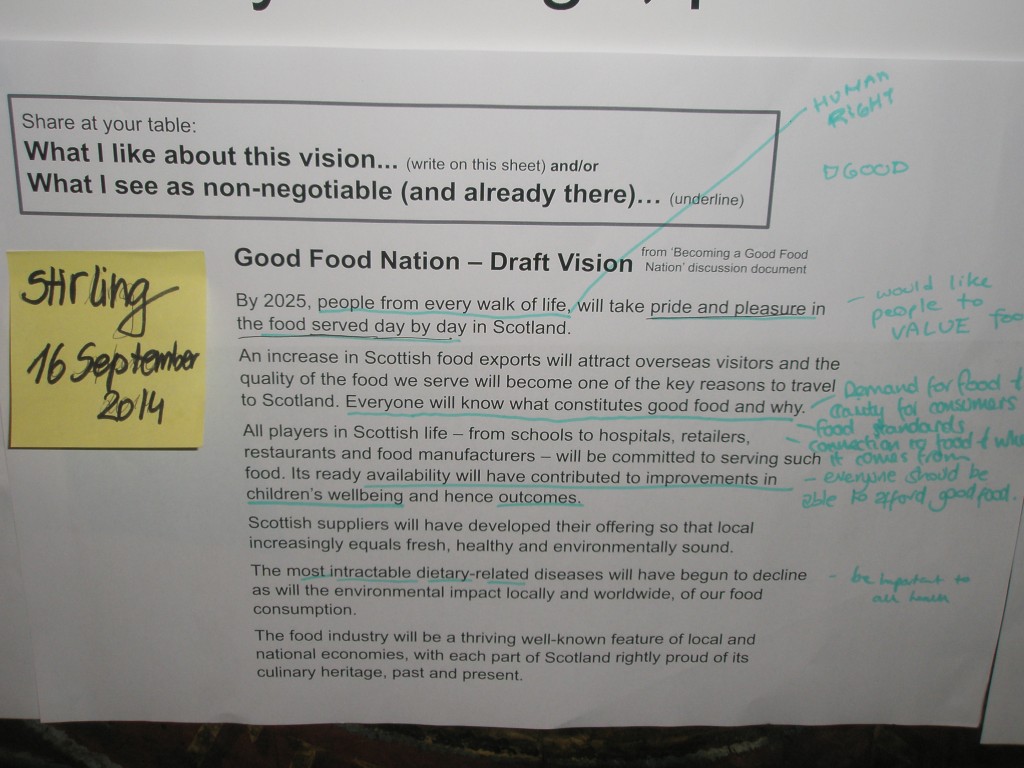 Share at your table:
What I like about this vision... (write on this sheet) and/or
What I see as non-negotiable (and already there)... (underline)
HUMAN
RIGHT
GOOD
Good Food Nation – Draft Vision
from 'Becoming a Good Food
Nation' discussion document
Stirling
16 September
2014
By 2025, people from every walk of life, will take pride and pleasure in
the food served day by day in Scotland.
- would like
people to
VALUE
An increase in Scottish food exports will attract overseas visitors and the
quality of the food we serve will become one of the key reasons to travel
to Scotland. Everyone will know what constitutes good food and why.
Demand for food +
clarity for consumers
- food standards
- connection to food +
it comes from
- everyone should be
able to afford good food.
All players in Scottish life – from schools to hospitals, retailers,
restaurants and food manufacturers – will be committed to serving such
food. Its ready availability will have contributed to improvements in
children's wellbeing and hence outcomes.
Scottish suppliers will have developed their offering so that local
increasingly equals fresh, healthy and environmentally sound.
The most intractable dietary-related diseases will have begun to decline
as will the environmental impact locally and worldwide, of our food
consumption.
- be important to
The food industry will be a thriving well-known feature of local and
national economies, with each part of Scotland rightly proud of its
culinary heritage, past and present.